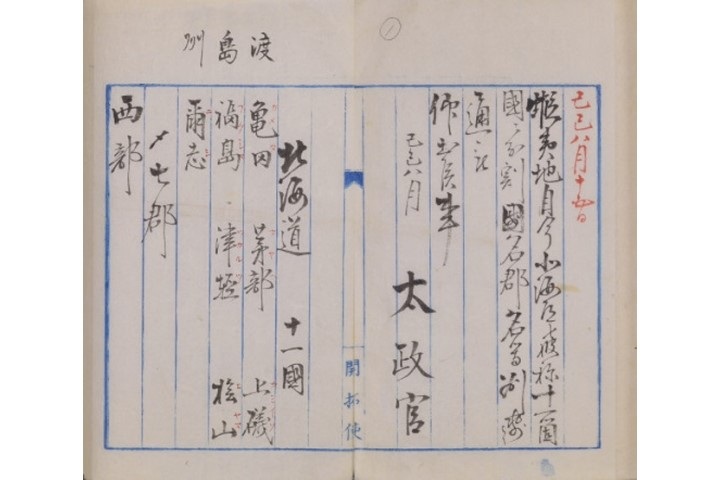 己巳八月十五日
蝦夷地自今北海道被称十一箇
國ニ分割國名郡名等別紙
通被
仰出候事
己巳八月
太政官
開拓使
北海道 十一國
渡島洲
亀田 茅部 上磯
福島 津軽 檜山
爾志
〆七郡
西部